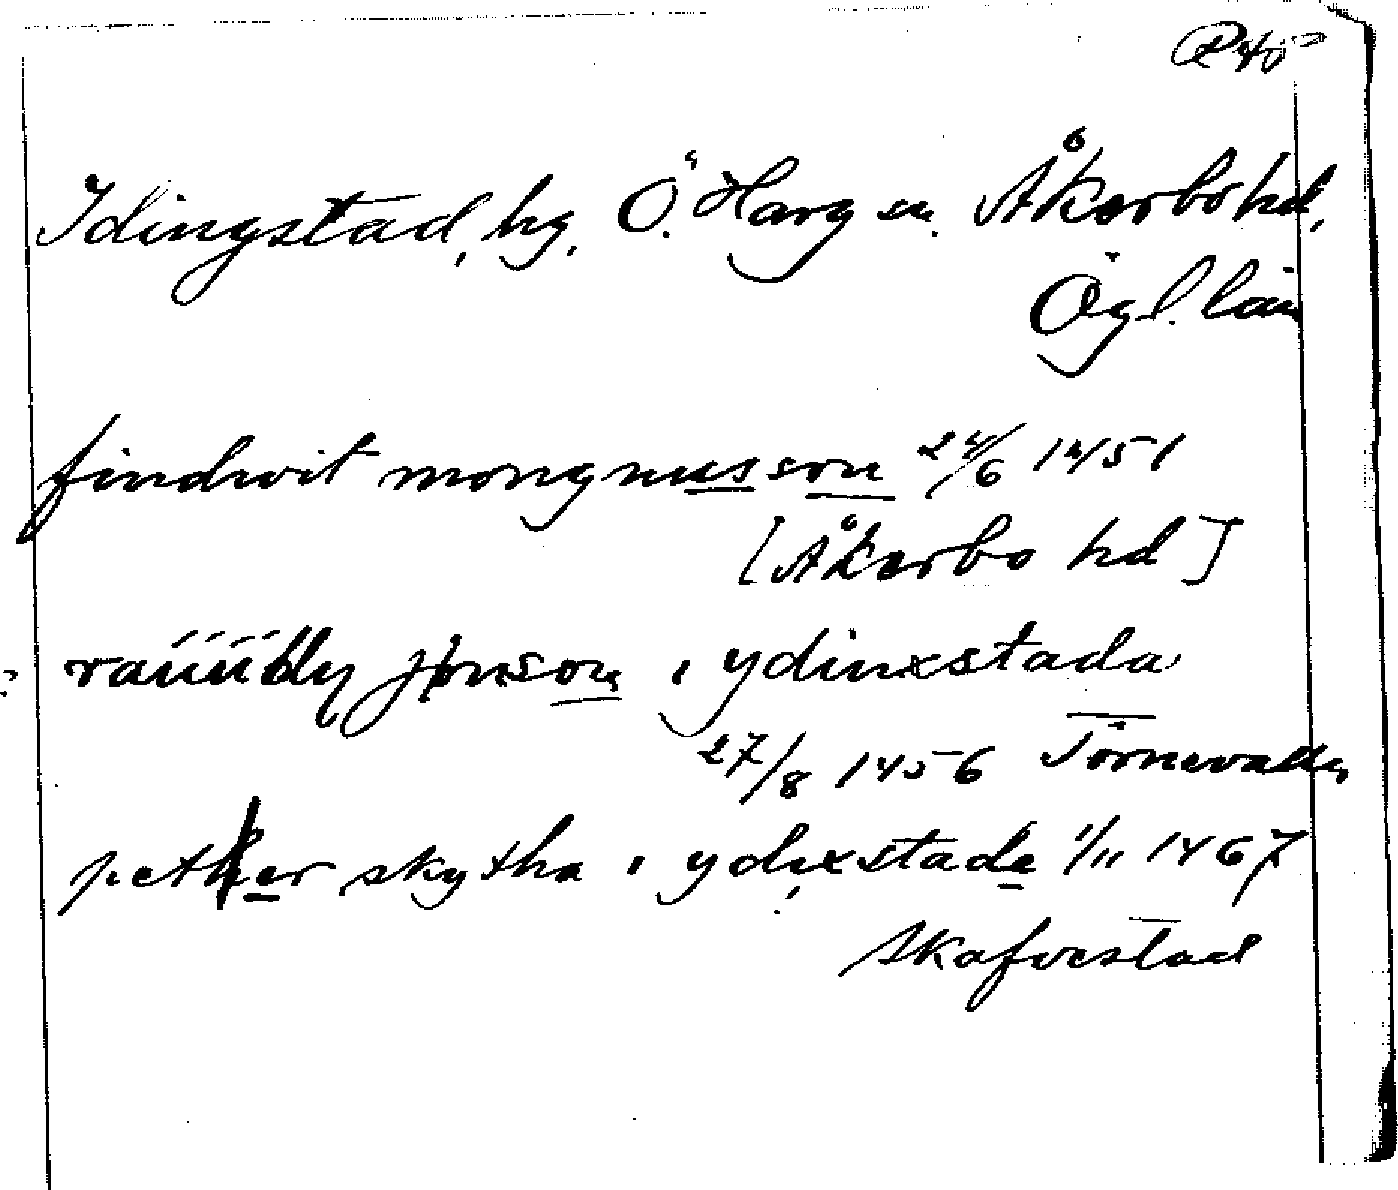 Idingstad, hg. Ö. Harg sn. Åkerbo hd,
Ögl. län
findwit mongnusson 24/6 1451
[Åkerbo hd]
jönson i ydinxstada
27/8 1456 Törnevalla
pether skytha i ydixstade 1/11 1467
Skafvestad